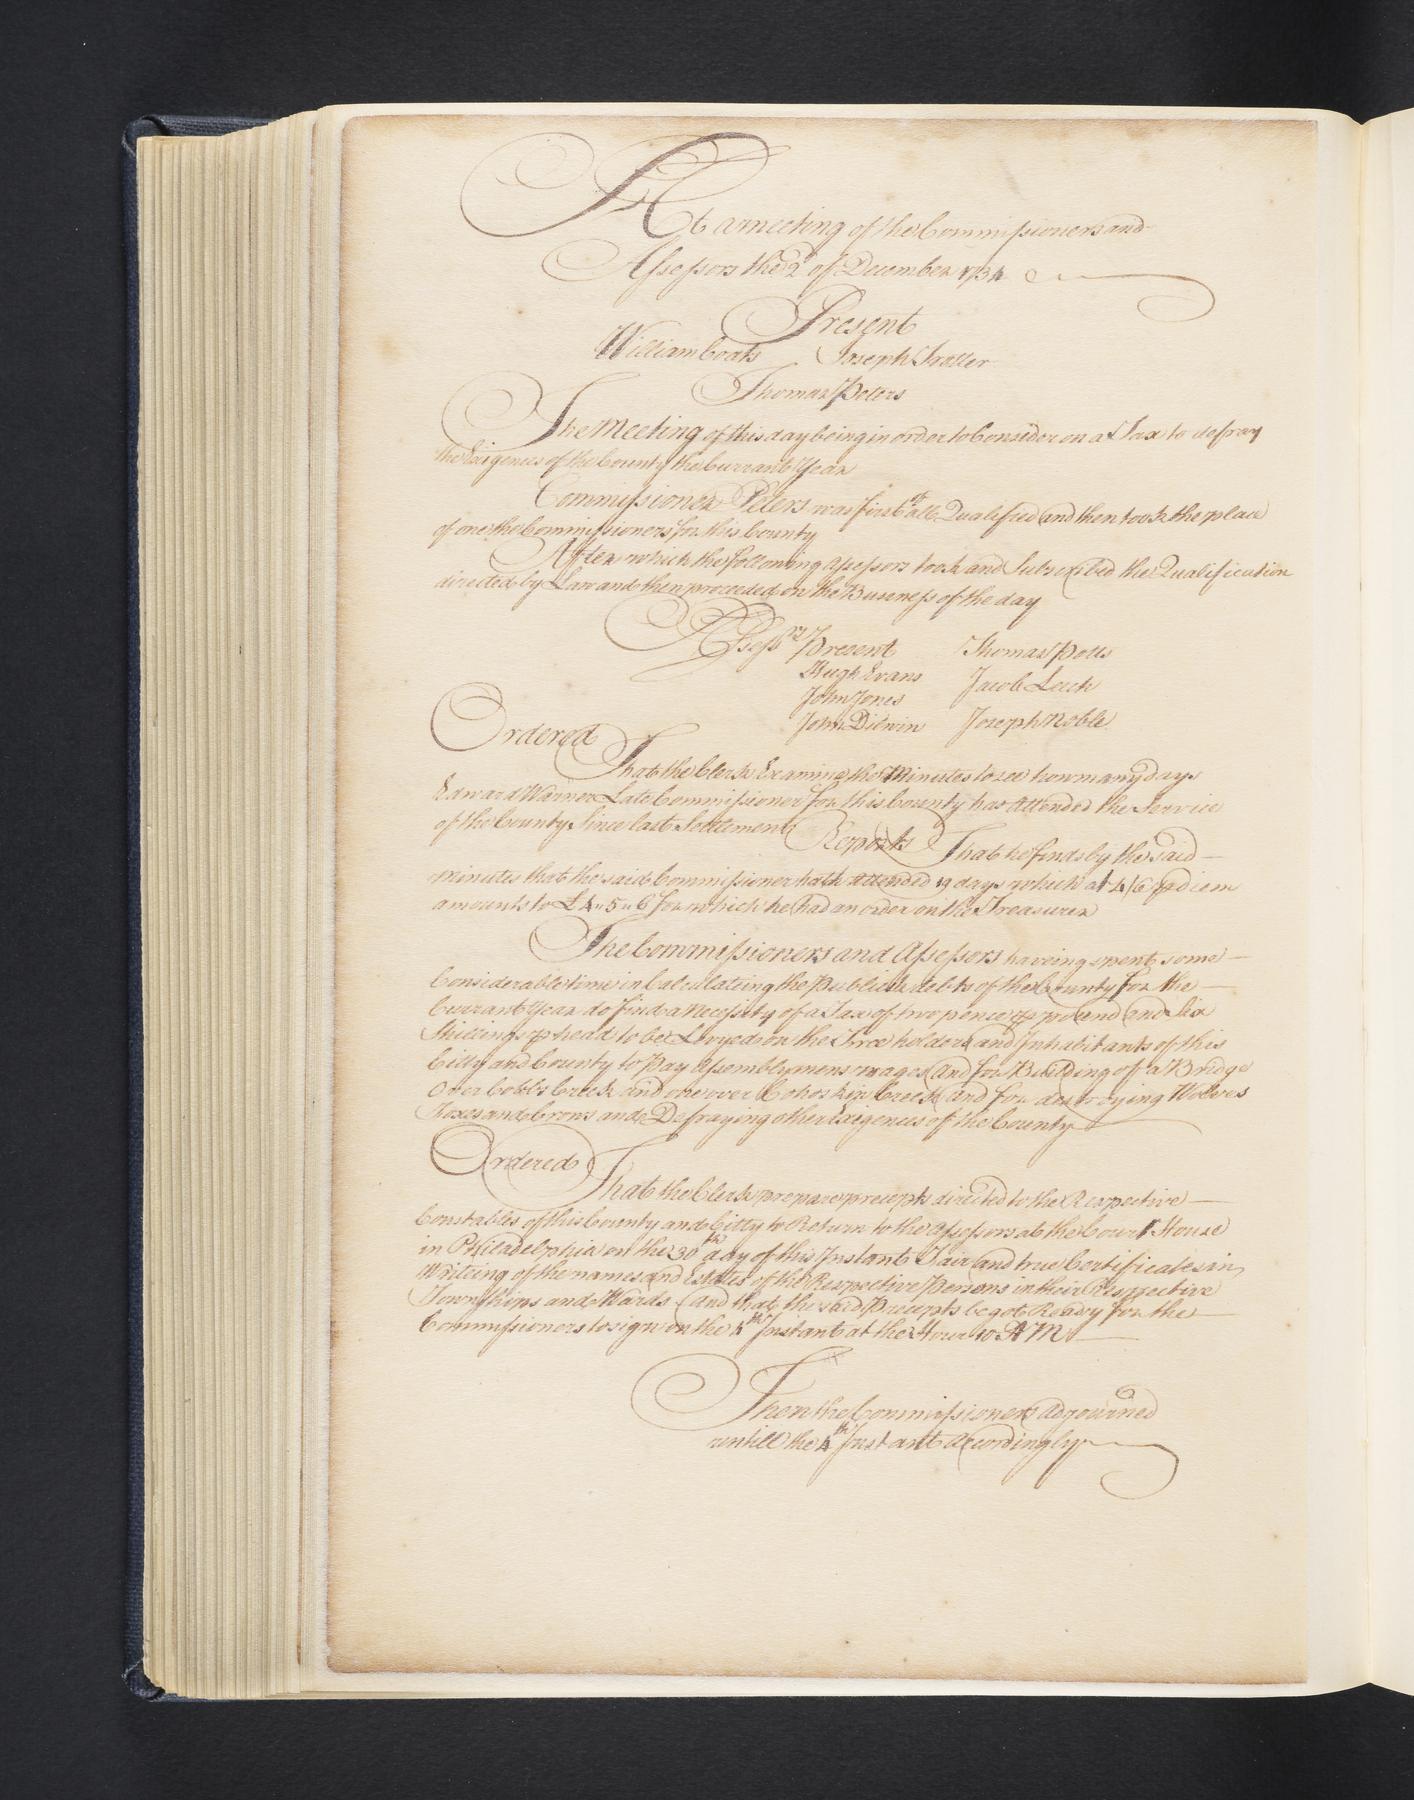 At a meeting of the Commissioners and
Assessors the 2d of December 1734
Present
William Coats Joseph Trotter
Thomas Peters
The Meeting of this day being in order to Consider on a Tax to defray
the Exigences of the County the Currant Year
Commissioner Peters was first of all Qualified and then took the place
of one the Commissioners for this County
After which the following Assessors took and Subscribed the Qualification
directed by Law and then proceeded on the Business of the day
Assessrs Present Thomas Potts
Hugh Evans Jacob Leech
John Jones
John Dilwin Joseph Noble
Ordered
That the Clerk Examine the Minutes to see how many days
Edward Warner Late Commissioner for this County has Attended the Service
of the County Since last Settlement Reports That he finds by the said
minutes that the said Commissioner hath Attended 19 days which at 4/6 p diem
amounts to £4"5"6 for which he had an order on the Treasurer
The Commissioners and Assessors haveing spent some
Considerable time in Calculateing the Publick debts of the County for the
Currant Year do find a Necessity of a Tax of two pence p pound and Six
Shillings p head to be Levyed on the Free holders and Inhabitants of this
Citty and County to Pay Assemblymens wages and for Building of a Bridge
Over Cobbs Creek and one over Cohoskin Creek and for destroying Wolves
Foxes and Crows and Defraying other Exigences of the County
Ordered
That the Clerk prepare precepts directed to the Respective
Constables of this County and Citty to Return to the Assessors at the Court House
in Philadelphia on the 30th day of this Instant Fair and true Certificates in
Writeing of the names and Estates of the Respective Persons in their Respective
Townships and Wards and that the said Precepts be got Ready for the
Commissioners to sign on the 4th Instant at the Hour 10 A M
Then the Commissioners Adjourned
untill the 4th Instant Accordingly